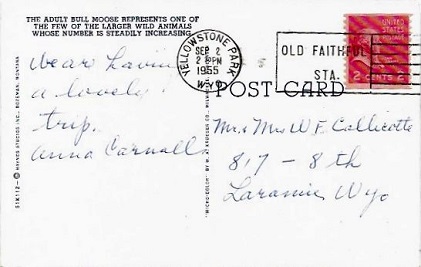 THE ADULT BULL MOOSE REPRESENTS ONE OF
THE FEW OF THE LARGER WILD ANIMALS
WHOSE NUMBER IS STEADILY INCREASING
We are having
a lovely
trip.
Anna Carnall
YELLOWSTONE PARK
SEP 2
2 PM
1955
WYO
OLD FAITHFUL
STA.
UNITED
STATES
POSTAGE
2 CENTS 2
POST CARD
Mr. & Mrs W. F. Callicotte
817 - 8th
Laramie Wyo